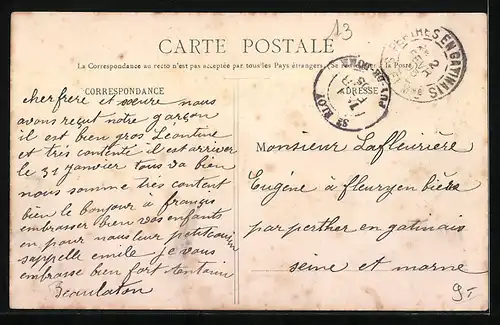 13
CARTE POSTALE
La Correspondance au recto n'est pas acceptée par tous les Pays étrangers. (Se à la Poste)
CORRESPONDANCE
ADRESSE
PERTHES EN GATINAIS
PUY-DE-DOME
cher frere et sœure nous
avons reçut notre garçon
il est bien gros Léontine
et très contente il est arriver
le 31 janvier tous va bien
nous somme très content
bien le bonjour a françis
embrasser bien vos enfants
en pour nous leur petit cousin
sappelle emile je vous
embrasse bien fort
Beaulaton
Monsieur Lafleurière
Eugéne à fleury en bière
par perther en gatinais
seine et marne